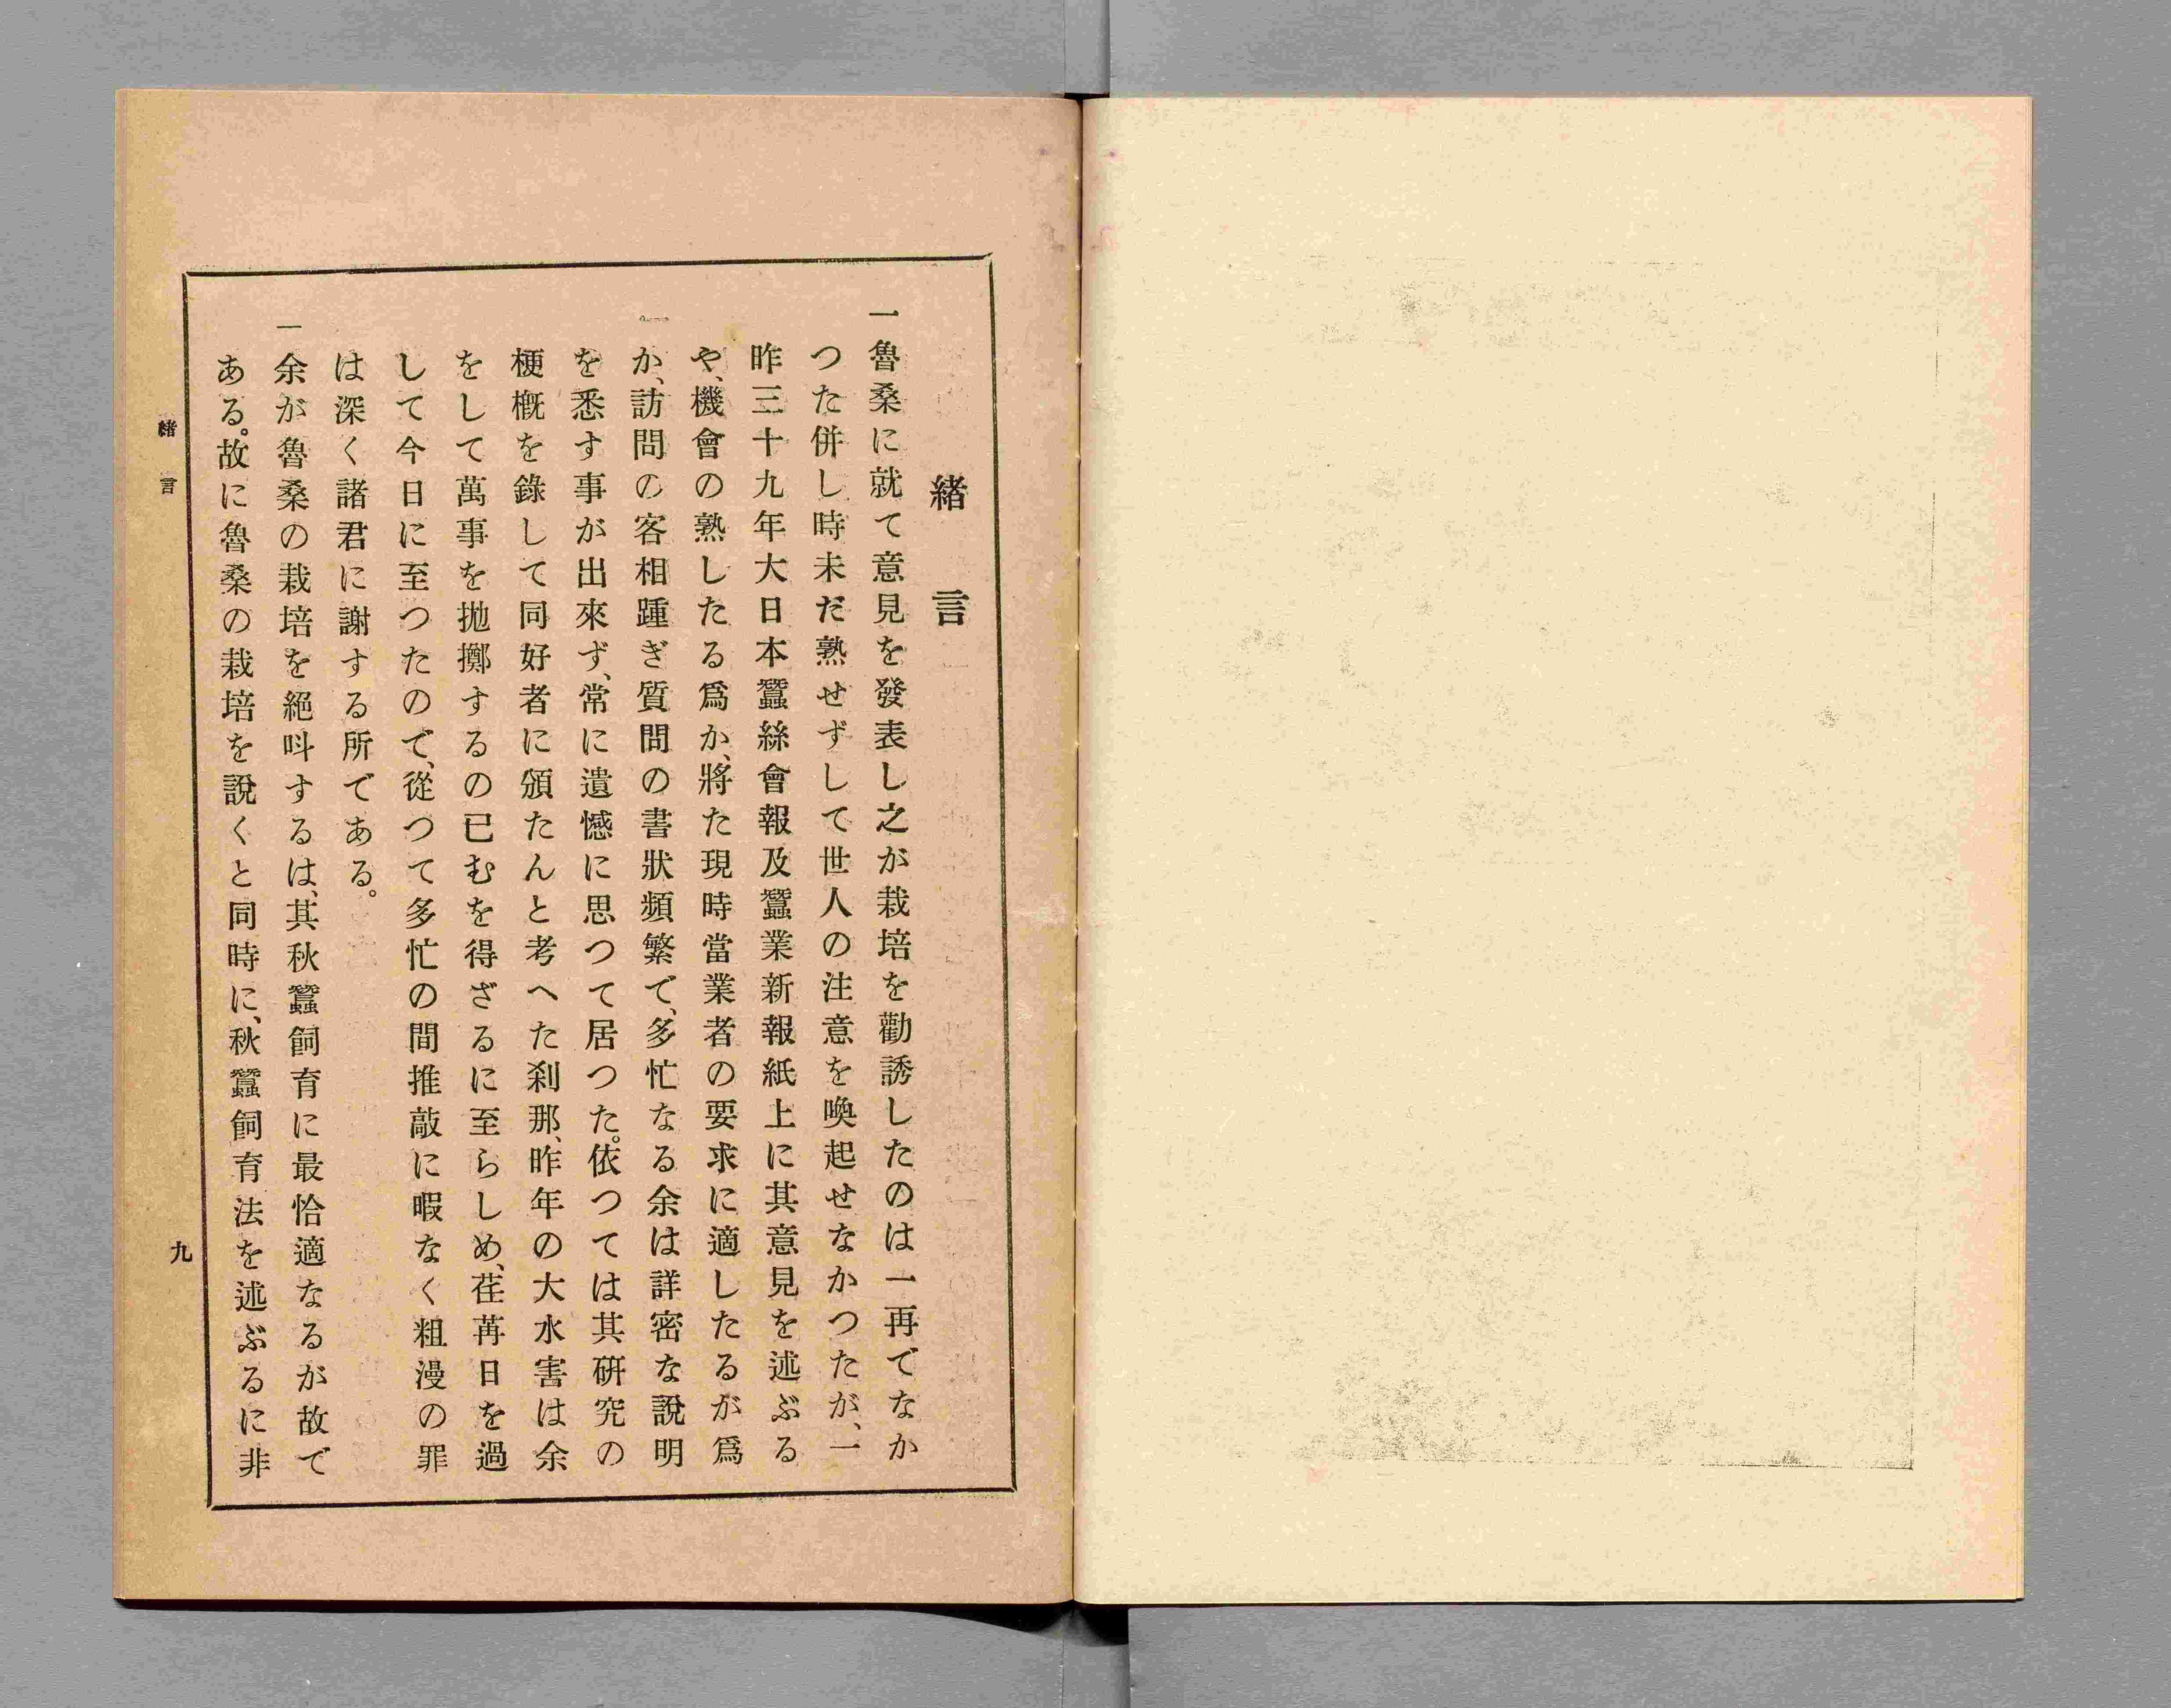 緒言
一魯桑に就て意見を發表し之が栽培を勸誘したのは一再でなか
つた併し時未だ熟せずして世人の注意を喚起せなかつたが、一
昨三十九年大日本蠶絲會報及蠶業新報紙上に其意見を述ぶる
や、機會の熟したる爲か、將た現時當業者の要求に適したるが爲
か、訪問の客相踵ぎ質問の書狀頻繁で、多忙なる余は詳密な說明
を悉す事が出來ず、常に遺憾に思つて居つた。依つては其硏究の
梗槪を錄して同好者に頒たんと考へた刹那、昨年の大水害は余
をして萬事を抛擲するの已むを得ざるに至らしめ、荏苒日を過
して今日に至つたので、從つて多忙の間推敲に暇なく粗漫の罪
は深く諸君に謝する所である。
一余が魯桑の栽培を絕呌するは、其秋蠶飼育に最恰適なるが故で
ある。故に魯桑の栽培を說くと同時に、秋蠶飼育法を述ぶるに非
緒言
九